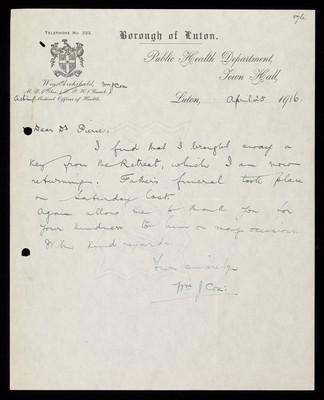 Telephone No. 323.
Borough of Luton.
Public Health Department,
Town Hall,
Wm Archibald, Wm J Cox
Acting Medical Officer of Health.
Luton, April 25 1916.
Dear Dr Pierce,
I find that I brought away a
key from the Retreat, which I am now
returning. Father's funeral took place
on Saturday last.
Again allow me to thank you for
your kindness to him on many occasions.
With kind regards
Yours sincerely
Wm J Cox.